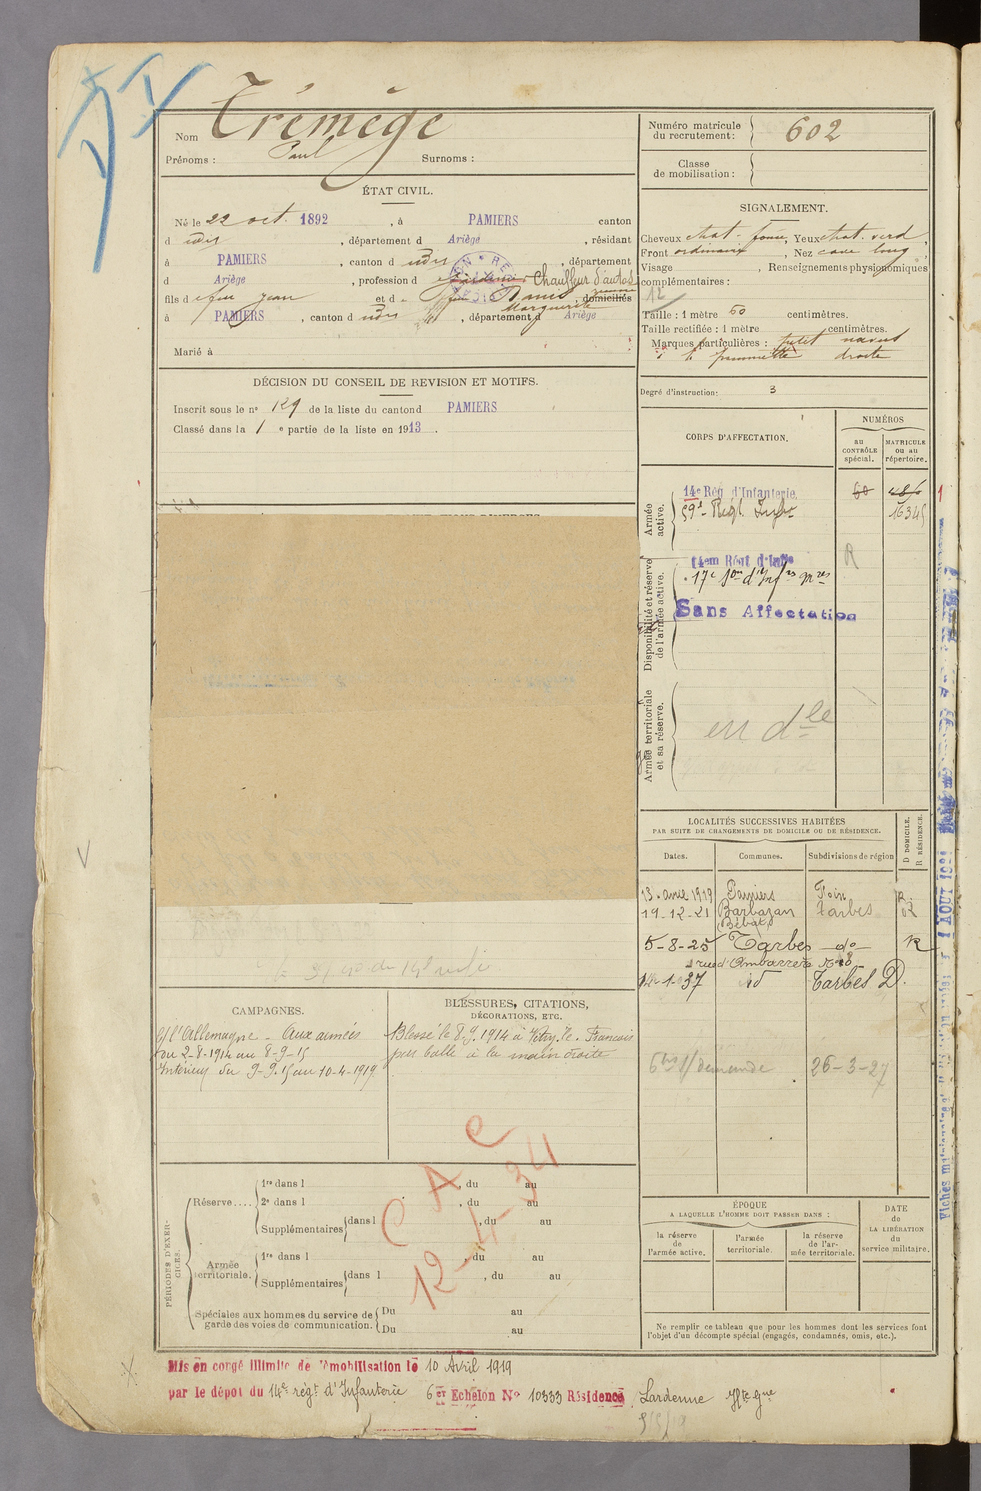 Nom Trémège
Prénoms : Paul Surnoms :
ÉTAT CIVIL.
Né le 22 oct. 1892, à PAMIERS canton
d udis, département d Ariège, résidant
à PAMIERS, canton d udis, département
d Ariège, profession d Chauffeur d'autos
fils de feu Jean et d domiciliés
Marguerite
à PAMIERS, canton d udis, département d Ariège
Marié à
DÉCISION DU CONSEIL DE REVISION ET MOTIFS.
Inscrit sous le n° 129 de la liste du canton d PAMIERS
Classé dans la 1 e partie de la liste en 1913.
CAMPAGNES.
C/ l'Allemagne - Aux armées
du 2-8-1914 au 8-9-15
Intérieur du 9-9-15 au 10-4-1919
BLESSURES, CITATIONS,
DÉCORATIONS, ETC.
Blessé le 8.9.1914 à Vitry-le-François
par balle à la main droite
C A C
12-4-34
PÉRIODES D'EXERCICES.
Réserve....
1re dans l , du au
2e dans l , du au
Supplémentaires dans l , du au
Armée territoriale.
1re dans l , du au
Supplémentaires dans l , du au
Spéciales aux hommes du service de garde des voies de communication.
Du au
Du au
Numéro matricule du recrutement : 602
Classe de mobilisation :
SIGNALEMENT.
Cheveux chat. foncé, Yeux chat. verd,
Front ordinaire, Nez cave long,
Visage , Renseignements physionomiques
complémentaires :
Taille : 1 mètre 60 centimètres.
Taille rectifiée : 1 mètre centimètres.
Marques particulières : petit naevus
à la pommette droite
Degré d'instruction : 3
CORPS D'AFFECTATION.
NUMÉROS
au CONTRÔLE spécial.
MATRICULE ou au répertoire.
Armée active.
14e Rég. d'Infanterie. 60
59e Régt Infie 16345
Disponibilité et réserve de l'armée active.
14em Régt d'Infie R
17e Son d'Infres mres
Sans Affectation
Armée territoriale et sa réserve.
en dle
LOCALITÉS SUCCESSIVES HABITÉES
PAR SUITE DE CHANGEMENTS DE DOMICILE OU DE RÉSIDENCE.
Dates. Communes. Subdivisions de région D DOMICILE. R RÉSIDENCE.
13. avril 1919 Pamiers Foix R
19-12-21 Barbazan Tarbes
Débat
5-8-25 Tarbes do R
rue d'Embarrère No 8
1-37 id Tarbes D.
s/demande 26-3-27
ÉPOQUE
A LAQUELLE L'HOMME DOIT PASSER DANS :
la réserve de l'armée active.
l'armée territoriale.
la réserve de l'armée territoriale.
DATE de LA LIBÉRATION du service militaire.
Ne remplir ce tableau que pour les hommes dont les services font
l'objet d'un décompte spécial (engagés, condamnés, omis, etc.).
Mis en congé illimité de démobilisation le 10 Avril 1919
par le dépot du 14e régt d'Infanterie 6 er Echelon No 10333 Résidence Lardenne Hte Gne